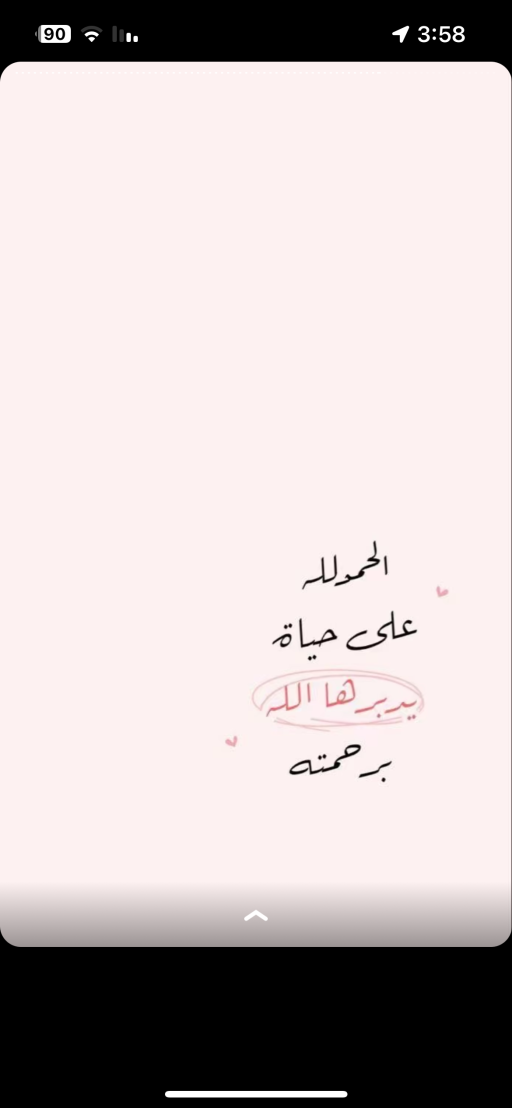 90
3:58
الحمدلله
على حياة
يدبرها الله
برحمته